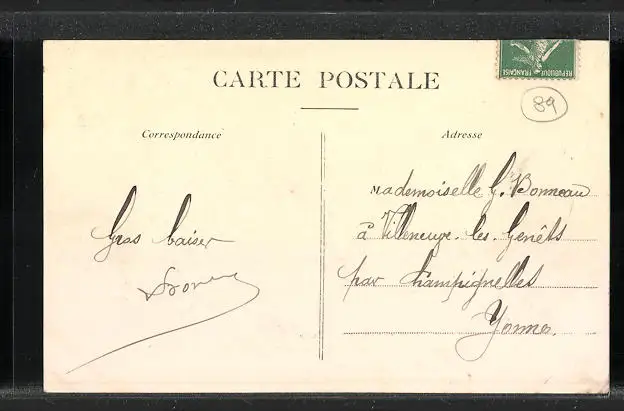 CARTE POSTALE
89
Correspondance
Adresse
Mademoiselle G. Bonneau
à Villeneuve-les-Genêts
par Champignelles
Yonne.
Gros baiser
REPUBLIQUE FRANÇAISE